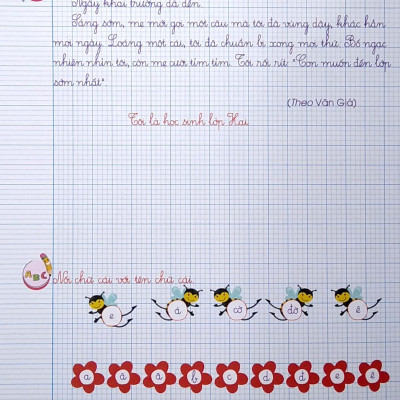 Ngày khai trường đã đến.
Sáng sớm, mẹ mới gọi một câu mà tôi đã vùng dậy, khác hẳn
mọi ngày. Loáng một cái, tôi đã chuẩn bị xong mọi thứ. Bố ngạc
nhiên nhìn tôi, còn mẹ cười tủm tỉm. Tôi rối rít: "Con muốn đến lớp
sớm nhất".
(Theo Văn Giá)
Tôi là học sinh lớp Hai
ABC
Nối chữ cái với tên chữ cái.
e á cờ đờ ê
a ă â b c d đ e ê